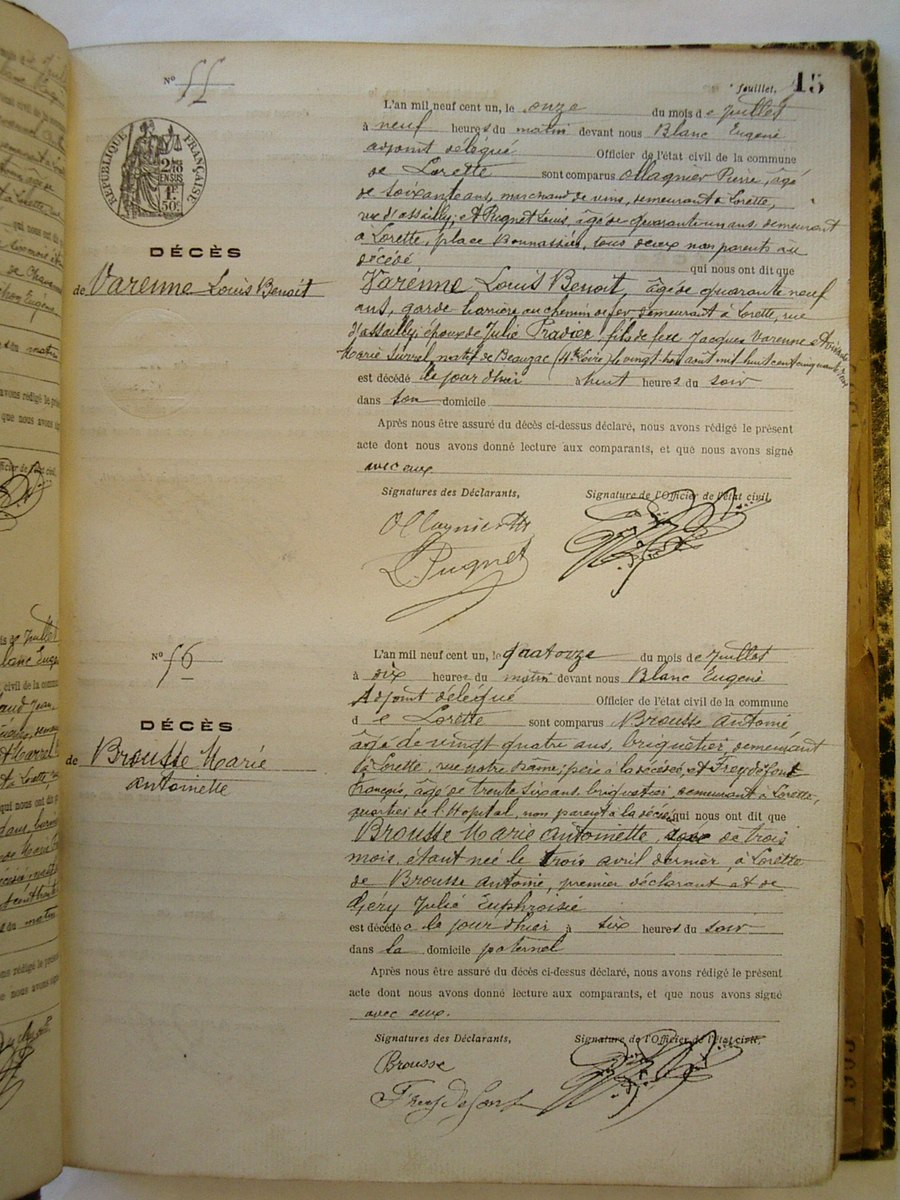 Nº 55
feuillet. 15
RÉPUBLIQUE FRANÇAISE
L'an mil neuf cent un, le onze du mois de Juillet
à neuf heures du matin devant nous Blanc Eugène
adjoint délégué Officier de l'état civil de la commune
de Lorette sont comparus Ollagnier Pierre, âgé
de soixante ans, marchand de vins, demeurant à Lorette,
rue d'assailly, et Pugnet Louis, âgé de quarante un ans demeurant
à Lorette, place Bonnassieu, tous deux non parents au
décédé qui nous ont dit que
DÉCÈS
de Varenne Louis Benoit
Varenne Louis Benoit, âgé de quarante neuf
ans, garde barrière au chemin de fer, demeurant à Lorette, rue
d'assailly, époux de Julie Pradier, fils de feu Jacques Varenne et
Marie Sivrel, natif de Beauzac (Hte Loire) le vingt août mil huit cent cinquante
est décédé le jour d'hier à huit heures du soir
dans son domicile
Après nous être assuré du décès ci-dessus déclaré, nous avons rédigé le présent
acte dont nous avons donné lecture aux comparants, et que nous avons signé
avec eux
Signatures des Déclarants, Signature de l'Officier de l'état civil,
Ollagnier
L Pugnet
Nº 56
L'an mil neuf cent un, le quatorze du mois de Juillet
à dix heures du matin devant nous Blanc Eugène
Adjoint délégué Officier de l'état civil de la commune
de Lorette sont comparus Brousse Antoine
âgé de vingt quatre ans, briquetier, demeurant
à Lorette, rue notre Dame, père à la décédée, et Freydefont
François, âgé de trente six ans, briquetier, demeurant à Lorette,
quartier de l'Hopital, non parent à la décédée qui nous ont dit que
DÉCÈS
de Brousse Marie
Antoinette
Brousse Marie Antoinette, âgée de trois
mois, étant née le trois avril dernier, à Lorette
de Brousse Antoine, premier déclarant et de
Géry Julie Euphroisie
est décédée le jour d'hier à six heures du soir
dans la domicile paternel
Après nous être assuré du décès ci-dessus déclaré, nous avons rédigé le présent
acte dont nous avons donné lecture aux comparants, et que nous avons signé
avec eux.
Signatures des Déclarants, Signature de l'Officier de l'état civil,
Brousse
Freydefont